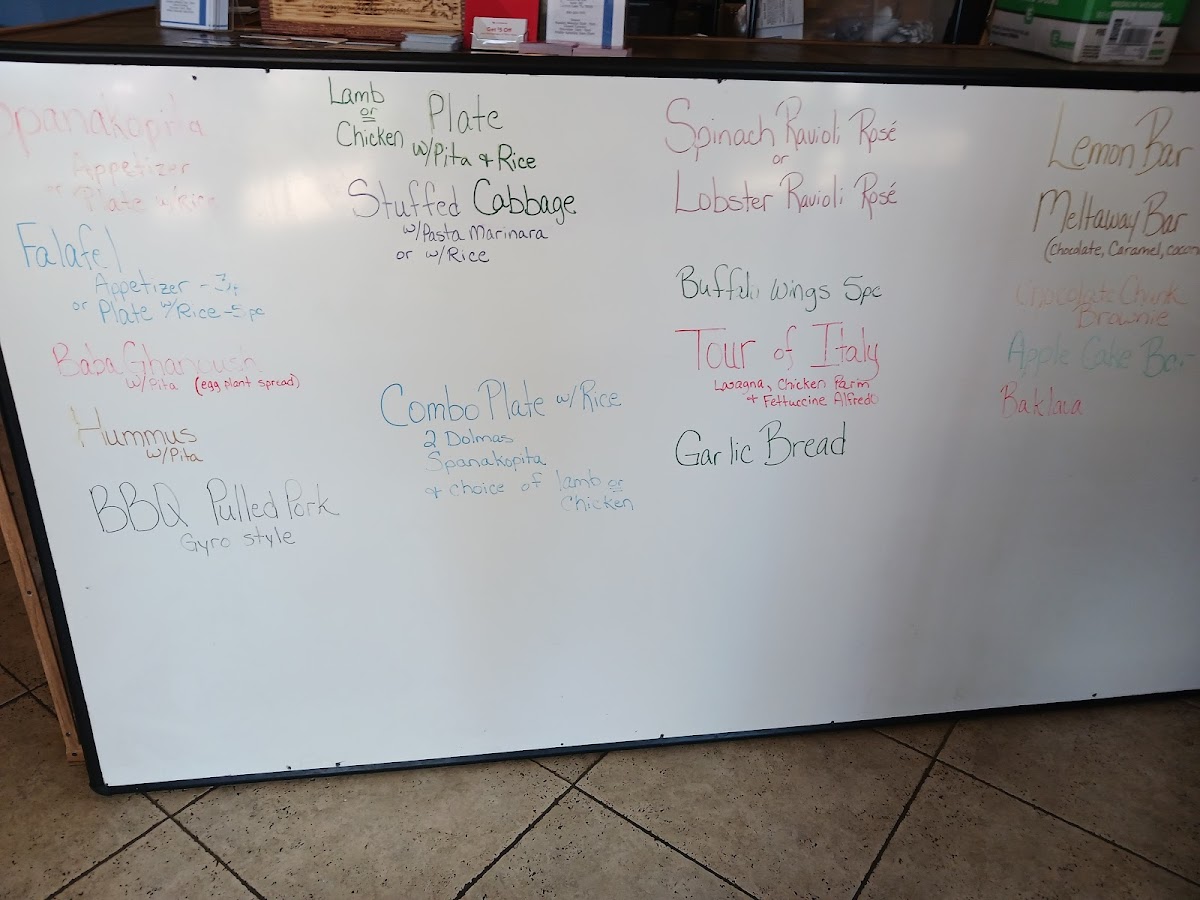 Spanakopita
Appetizer
or Plate w/Rice
Falafel
Appetizer - 3pc
or Plate w/Rice - 5pc
Baba Ghanoush
w/Pita (egg plant spread)
Hummus
w/Pita
BBQ Pulled Pork
Gyro style
Lamb
or
Chicken Plate
w/Pita & Rice
Stuffed Cabbage
w/Pasta Marinara
or w/Rice
Combo Plate w/Rice
2 Dolmas
Spanakopita
& choice of lamb or
Chicken
Spinach Ravioli Rosé
or
Lobster Ravioli Rosé
Buffalo Wings 5pc
Tour of Italy
Lasagna, Chicken Parm
& Fettuccine Alfredo
Garlic Bread
Lemon Bar
Meltaway Bar
(Chocolate, Caramel, cocon
Chocolate Chunk
Brownie
Apple Cake Bar
Baklava